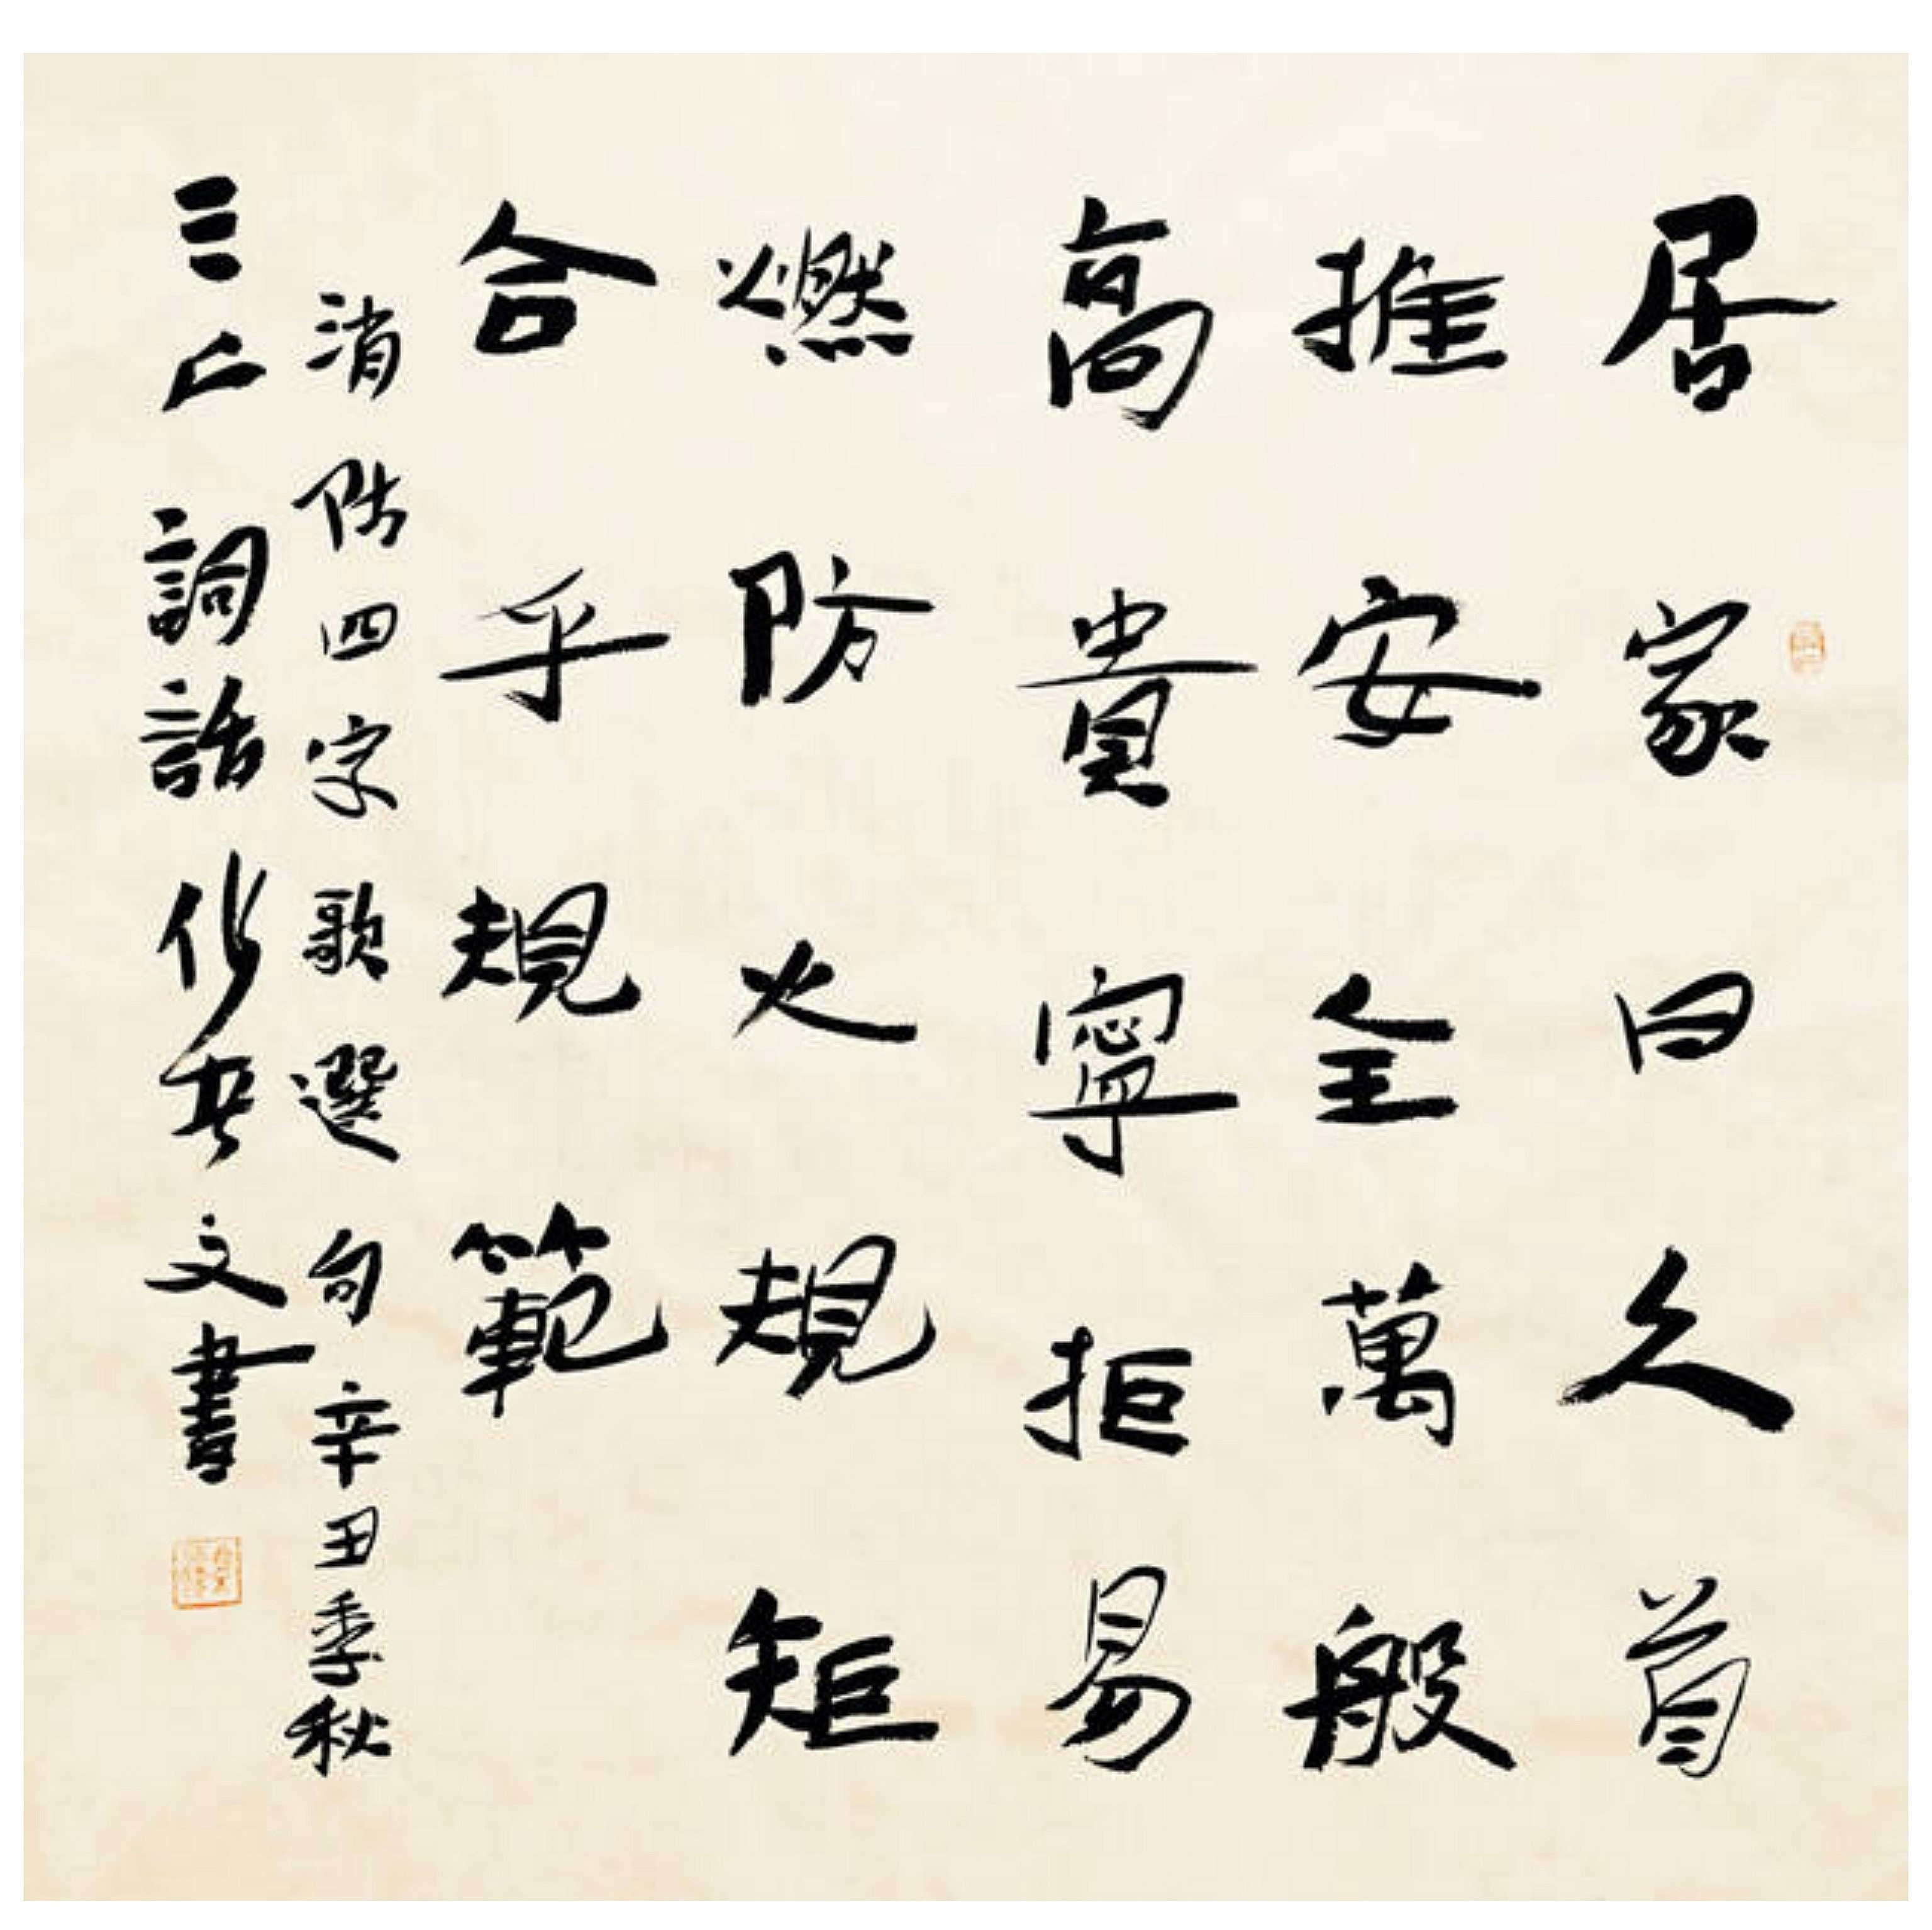 居家日久首
推安全萬般
高貴寧拒易
燃防火規矩
合乎規範
消防四字歌選句辛丑季秋
詞話文書